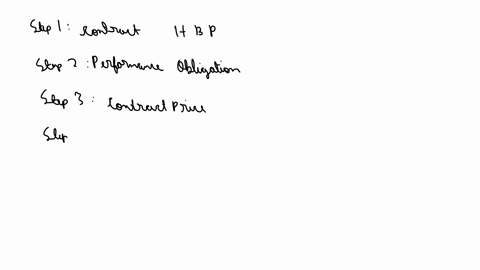 Step 1: Contract H B P
Step 2: Performance Obligation
Step 3: Contract Price
Step